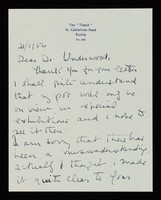 The "Thatch"
St. Catherines Road
21/1/56
Dear Dr. Underwood,
Thank you for your letter
I shall quite understand
that my pot will only be
on view in special
exhibitions and I hope to
see it then.
I am sorry that there has
been a misunderstanding
actually I thought I made
it quite clear to your